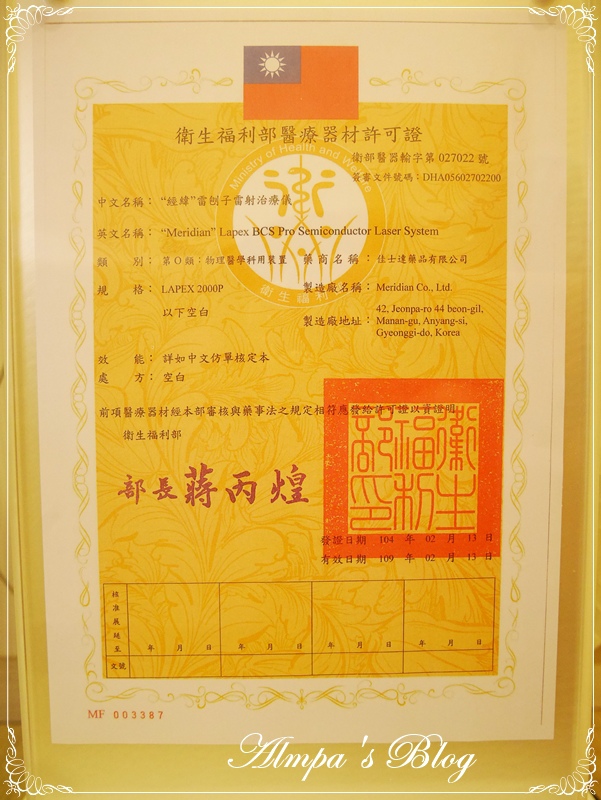 衛生福利部醫療器材許可證
Ministry of Health and Welfare
衛部醫器輸字第 027022 號
簽審文件號碼：DHA05602702200
中文名稱：“經緯”雷刨子雷射治療儀
英文名稱：“Meridian” Lapex BCS Pro Semiconductor Laser System
類別：第O類：物理醫學科用裝置 藥商名稱：佳士達藥品有限公司
規格：LAPEX 2000P 製造廠名稱：Meridian Co., Ltd.
以下空白 製造廠地址：42, Jeonpa-ro 44 beon-gil,
Manan-gu, Anyang-si,
Gyeonggi-do, Korea
衛生福利
效能：詳如中文仿單核定本
處方：空白
前項醫療器材經本部審核與藥事法之規定相符應發給許可證以資證明
衛生福利部
部長 蔣丙煌
衛生福利部印
發證日期 104 年 02 月 13 日
有效日期 109 年 02 月 13 日
核准展延至 年 月 日 年 月 日 年 月 日 年 月 日
文號
MF 003387
Almpa's Blog